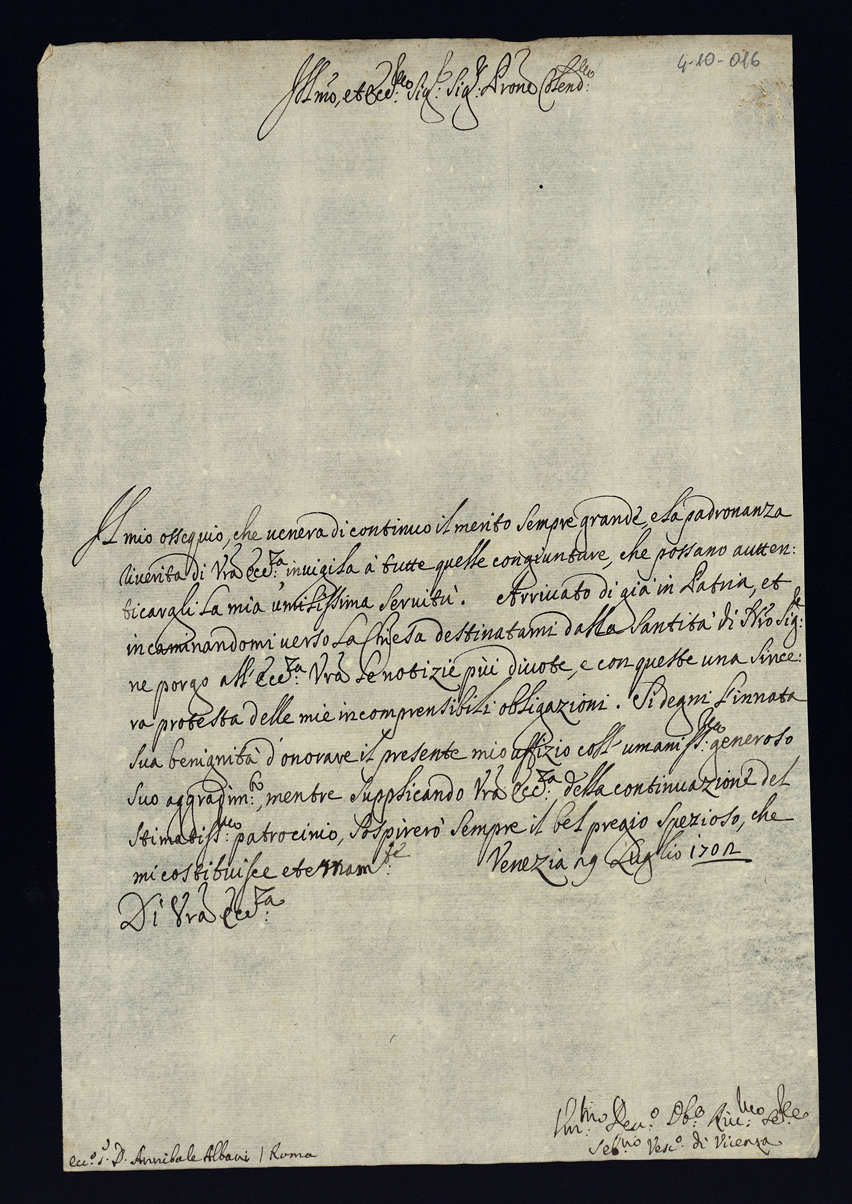 4-10-016
Ill.mo, et Ecc.mo Sig.r Sig.r P̃rone Colend.mo
Il mio ossequio, che venera di continuo il merito sempre grande, e la padronanza
riverita di Vr̃a Ecc.za invigila à tutte quelle congiunture, che possano autten:
ticargli la mia umilissima servitù. Arrivato di già in Patria, et
incaminandomi verso la Chiesa destinatami dalla Santità di Nr̃o Sig.re
ne porgo all'Ecc.za Vr̃a le notizie più divote, e con queste una since:
ra protesta delle mie incomprensibili obligazioni. Si degni l'innata
sua benignità d'onorare il presente mio uffizio coll'umaniss.mo generoso
suo aggradim.to, mentre supplicando Vr̃a Ecc.za della continuazione del
stimatiss.mo patrocinio, sospirerò sempre il bel pregio spezioso, che
mi costituisce eternam.te Venezia 29 Luglio 1702
Di Vr̃a Ecc.za
Um.mo Dev.o Obb.o
Seb.no Vesc.o di Vicenza
D. Annibale Albani / Roma